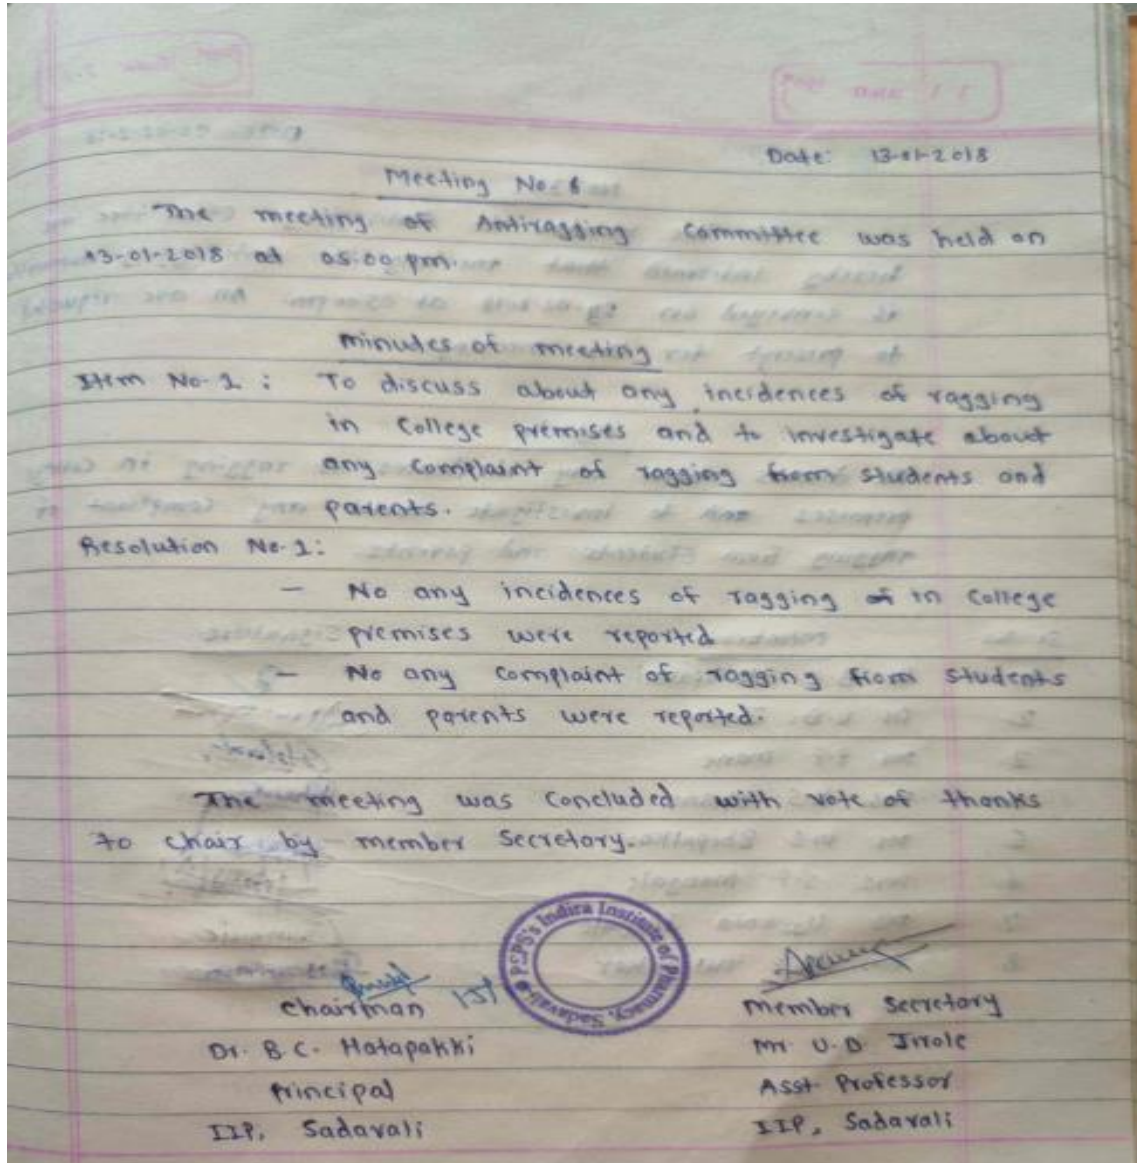 Date: 13-01-2018
Meeting No.
The meeting of Antiragging Committee was held on
13-01-2018 at 05:00 pm.
minutes of meeting
Item No-1 : To discuss about any incidences of ragging
in College premises and to investigate about
any complaint of ragging from students and
parents.
Resolution No-1:
- No any incidences of ragging in College
premises were reported
- No any complaint of ragging from students
and parents were reported.
The meeting was concluded with vote of thanks
to chair by member Secretary.
PSPS's Indira Institute of Pharmacy, Sadavali
Chairman
Member Secretary
Dr. B.C. Hatapakki
Mr. U.D. Jivole
Principal
Asst. Professor
IIP, Sadavali
IIP, Sadavali